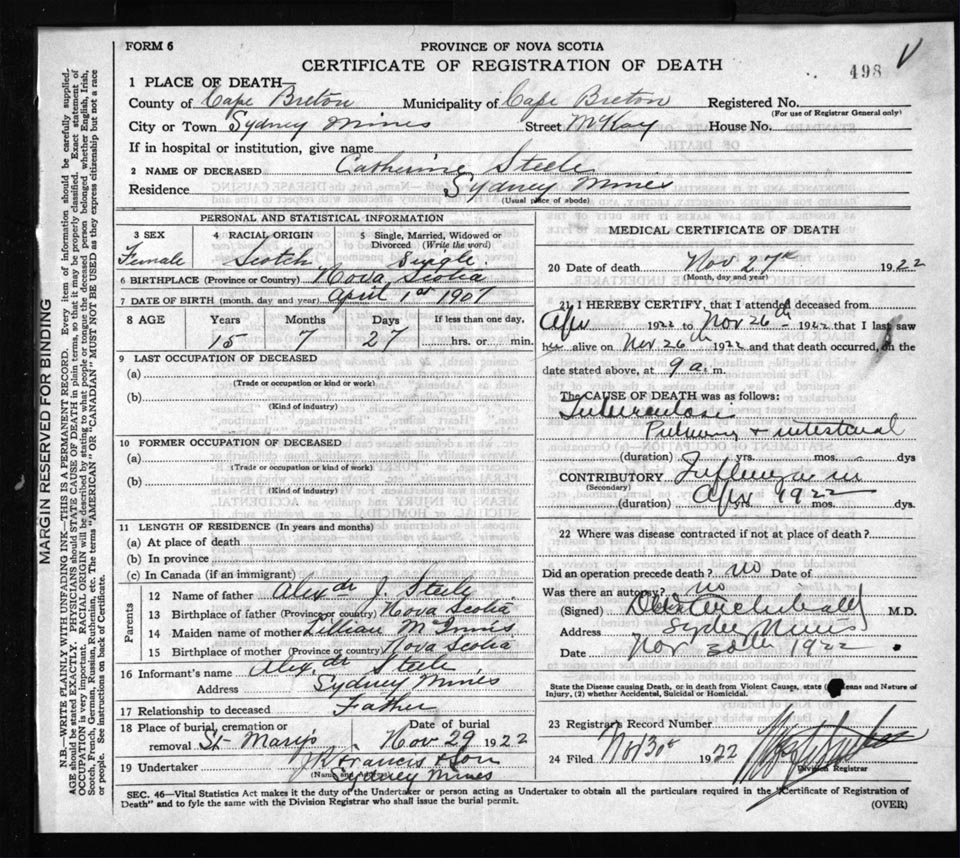 FORM 6
PROVINCE OF NOVA SCOTIA
CERTIFICATE OF REGISTRATION OF DEATH
498 V
1 PLACE OF DEATH—
County of Cape Breton Municipality of Cape Breton Registered No.
(For use of Registrar General only)
City or Town Sydney Mines Street McKay House No.
If in hospital or institution, give name
2 NAME OF DECEASED Catherine Steele
Residence Sydney Mines
(Usual place of abode)
PERSONAL AND STATISTICAL INFORMATION
3 SEX 4 RACIAL ORIGIN 5 Single, Married, Widowed or Divorced (Write the word)
Female Scotch Single
6 BIRTHPLACE (Province or Country) Nova Scotia
7 DATE OF BIRTH (month, day and year) April 1st 1907
8 AGE Years Months Days If less than one day,
15 7 27 hrs. or min.
9 LAST OCCUPATION OF DECEASED
(a)
(Trade or occupation or kind or work)
(b)
(Kind of industry)
10 FORMER OCCUPATION OF DECEASED
(a)
(Trade or occupation or kind of work)
(b)
(Kind of industry)
11 LENGTH OF RESIDENCE (In years and months)
(a) At place of death
(b) In province
(c) In Canada (if an immigrant)
Parents
12 Name of father Alexdr J. Steele
13 Birthplace of father (Province or country) Nova Scotia
14 Maiden name of mother Lillian McInnis
15 Birthplace of mother (Province or country) Nova Scotia
16 Informant's name Alex.dr Steele
Address Sydney Mines
17 Relationship to deceased Father
18 Place of burial, cremation or removal St. Mary's Date of burial Nov 29 1922
19 Undertaker Francis & Son
(Name and Address) Sydney Mines
MEDICAL CERTIFICATE OF DEATH
20 Date of death Nov 27th 1922
(Month, day and year)
21 I HEREBY CERTIFY, that I attended deceased from
Apr 1922 to Nov 26th 1922 that I last saw
her alive on Nov 26th 1922 and that death occurred, on the
date stated above, at 9 a. m.
The CAUSE OF DEATH was as follows:
Tuberculosis
Pulmonary & intestinal
(duration) yrs. mos. dys
CONTRIBUTORY Influenza in
(Secondary) Apr 1922
(duration) yrs. mos. dys.
22 Where was disease contracted if not at place of death?
Did an operation precede death? no Date of
Was there an autopsy? no
(Signed) M.D.
Address Sydney Mines
Date Nov 30th 1922
State the Disease causing Death, or in death from Violent Causes, state Means and Nature of
Injury, (2) whether Accidental, Suicidal or Homicidal.
23 Registrar's Record Number
24 Filed Nov 30th 1922
Division Registrar
SEC. 46—Vital Statistics Act makes it the duty of the Undertaker or person acting as Undertaker to obtain all the particulars required in the "Certificate of Registration of
Death" and to fyle the same with the Division Registrar who shall issue the burial permit. (OVER)
MARGIN RESERVED FOR BINDING
N.B.—WRITE PLAINLY WITH UNFADING INK—THIS IS A PERMANENT RECORD. Every item of information should be carefully supplied.
AGE should be stated EXACTLY. PHYSICIANS should STATE CAUSE OF DEATH in plain terms, so that it may be properly classified. Exact statement of
OCCUPATION is very important. RACIAL ORIGIN will be described by stating to what people or tongue the deceased person belonged whether English, Irish,
Scotch, French, German, Russian, Ruthenian, etc. The terms "AMERICAN" OR "CANADIAN" MUST NOT BE USED as they express citizenship but not a race
or people. See instructions on back of Certificate.